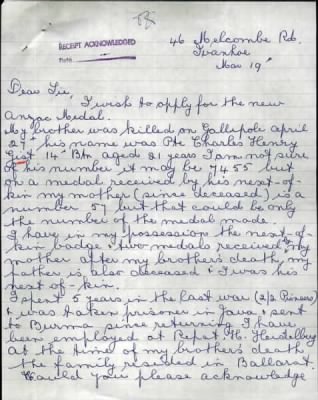 RECEIPT ACKNOWLEDGED
46 Melcombe Rd.
Ivanhoe
Nov 19th
Dear Sir,
I wish to apply for the new
Anzac Medal.
My brother was killed on Gallipoli April
27th his name was Pte Charles Henry
Gist 14th Btn aged 21 years I am not sure
of his number it may be 7455 but
on a medal received by his next-of-
kin my mother (since deceased) is a
number 57 but that could be only
the number of the medal made.
I have in my possession the next-of-
kin badge & two medals received by my
mother after my brother's death, my
father is also deceased & I was his
next of-kin.
I spent 5 years in the last war (2/2 Pioneers)
& was taken prisoner in Java & sent
to Burma since returning I have
been employed at Repat. H. Heidelberg
At the time of my brother's death
the family resided in Ballarat.
Could you please acknowledge